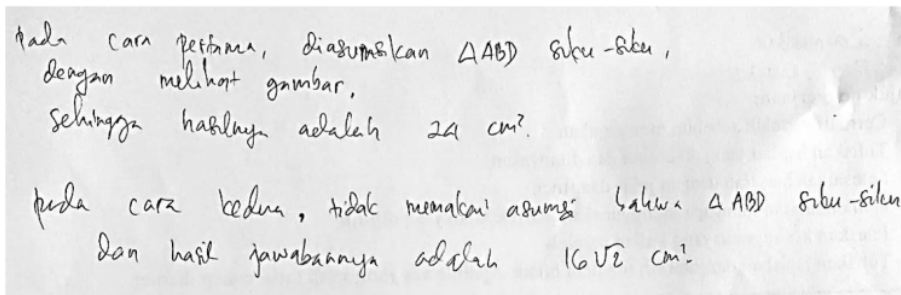 pada cara pertama, diasumsikan △ABD siku-siku,
dengan melihat gambar,
sehingga hasilnya adalah 24 cm².
pada cara kedua, tidak memakai asumsi bahwa △ ABD siku-siku
dan hasil jawabannya adalah 16√2 cm².